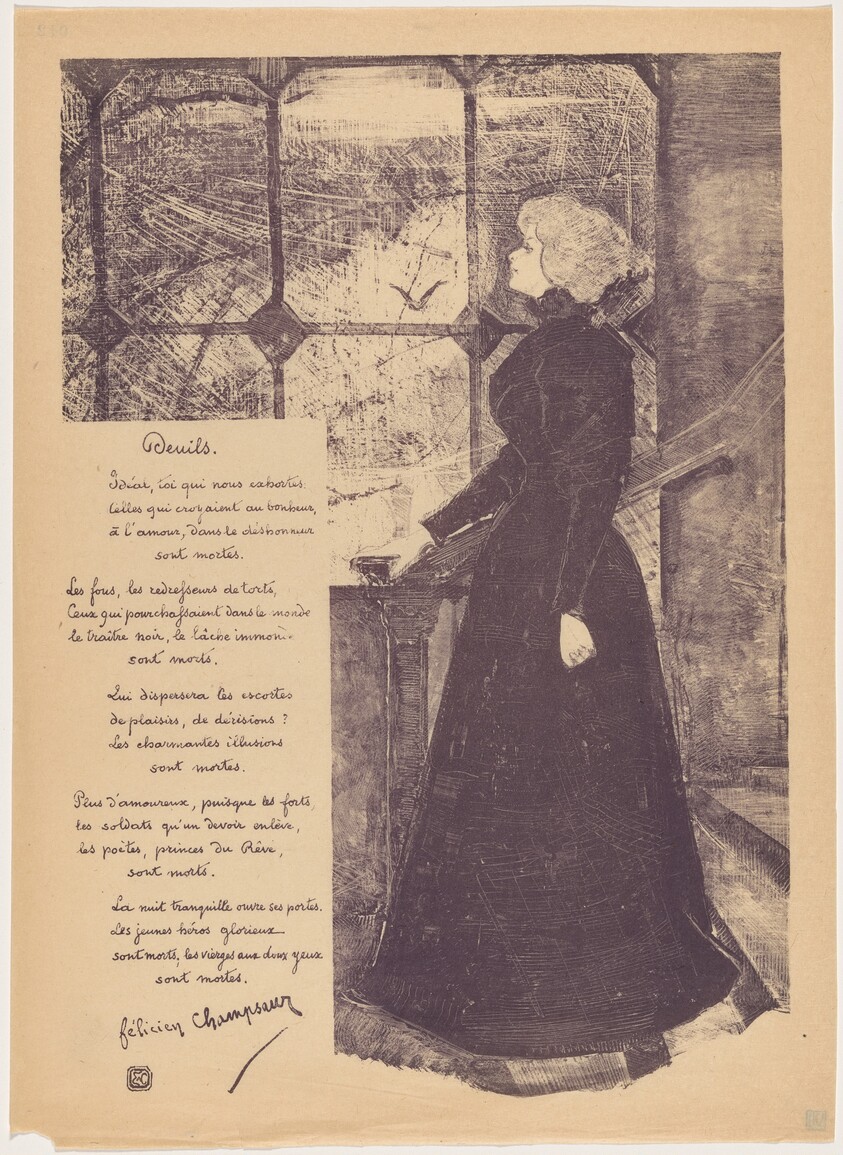 Deuils.
Idéal, toi qui nous exhortes:
Celles qui croyaient au bonheur,
à l'amour, dans le déshonneur
sont mortes.
Les fous, les redresseurs de torts,
Ceux qui pourchassaient dans le monde
le traître noir, le lâche immonde
sont morts.
Qui dispersera les escortes
de plaisirs, de dérisions ?
Les charmantes illusions
sont mortes.
Plus d'amoureux, puisque les forts,
les soldats qu'un devoir enlève,
les poètes, princes du Rêve,
sont morts.
La nuit tranquille ouvre ses portes.
Les jeunes héros glorieux
sont morts, les vierges aux doux yeux
sont mortes.
félicien Champsaur